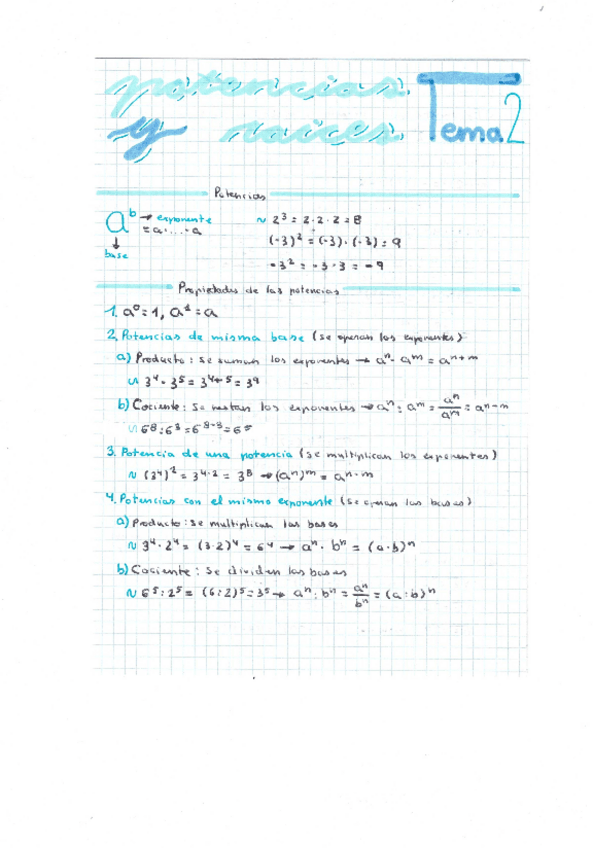 potencias
y raíces
Tema 2
Potencias
a^b → exponente
= a·...·a
↓
base
~ 2³ = 2·2·2 = 8
(-3)² = (-3)·(-3) = 9
-3² = -3·3 = -9
Propiedades de las potencias
1. a⁰ = 1, a¹ = a
2. Potencias de misma base (se operan los exponentes)
a) Producto: se suman los exponentes → aⁿ · aᵐ = aⁿ⁺ᵐ
~ 3⁴ · 3⁵ = 3⁴⁺⁵ = 3⁹
b) Cociente: Se restan los exponentes → aⁿ : aᵐ = aⁿ/aᵐ = aⁿ⁻ᵐ
~ 6⁸ : 6³ = 6⁸⁻³ = 6⁵
3. Potencia de una potencia (se multiplican los exponentes)
~ (3⁴)² = 3⁴·² = 3⁸ → (aⁿ)ᵐ = aⁿ·ᵐ
4. Potencias con el mismo exponente (se operan las bases)
a) Producto: se multiplican las bases
~ 3⁴ · 2⁴ = (3·2)⁴ = 6⁴ → aⁿ · bⁿ = (a·b)ⁿ
b) Cociente: Se dividen las bases
~ 6⁵ : 2⁵ = (6:2)⁵ = 3⁵ → aⁿ : bⁿ = aⁿ/bⁿ = (a:b)ⁿ